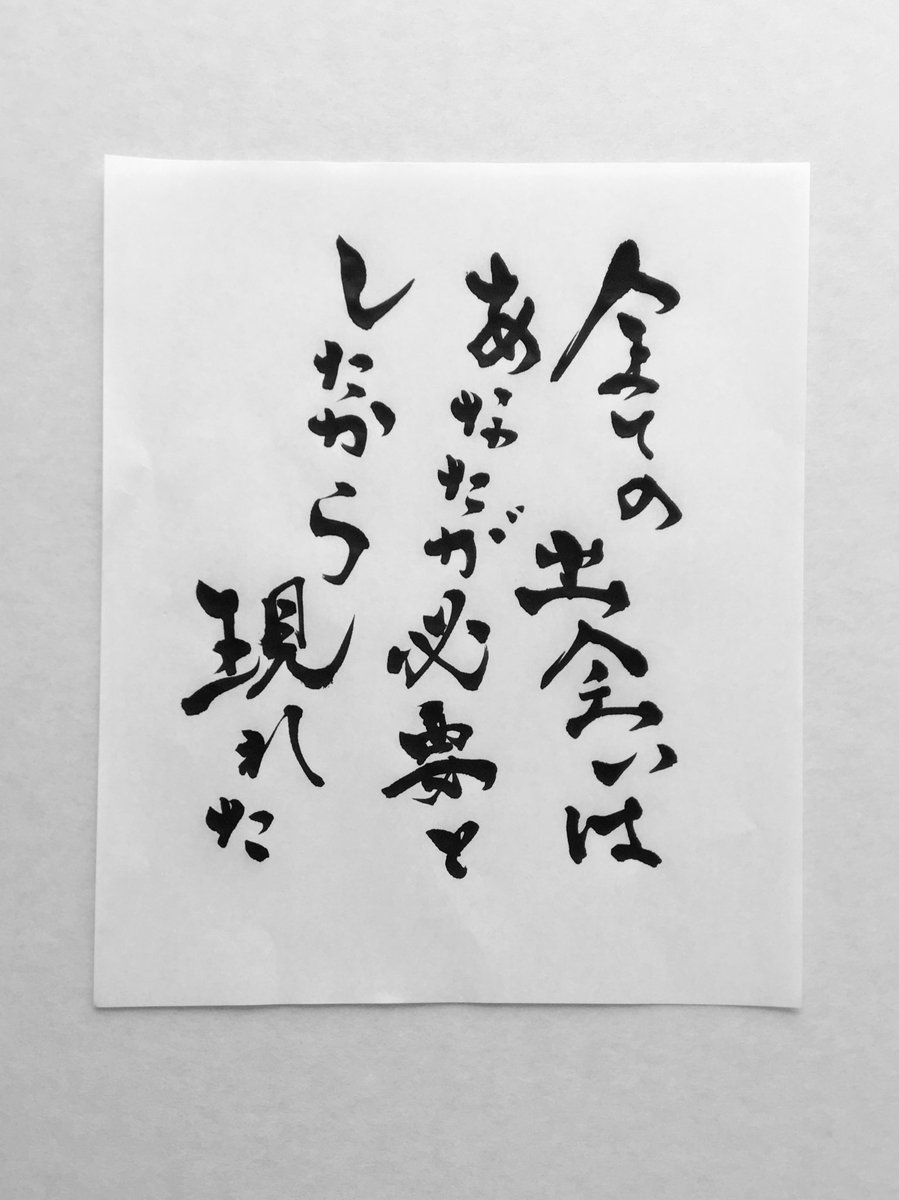 全ての出会いは
あなたが必要と
したから現れた